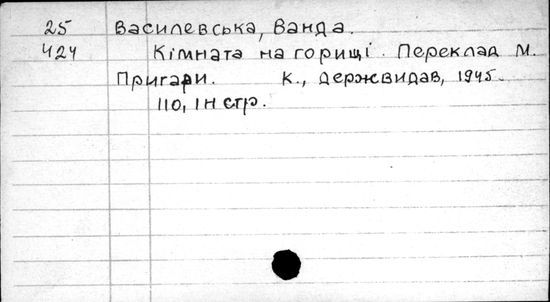 25 Василевська, Ванда.
424 Кімната на горищі. Переклад М.
Пригари. К., Держвидав, 1945.
110, 1н стр.